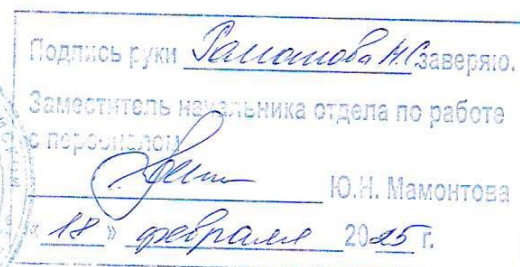 Подпись руки Романова Н.С. заверяю.
Заместитель начальника отдела по работе
с персоналом
Ю.Н. Мамонтова
« 18 » февраля 2025 г.